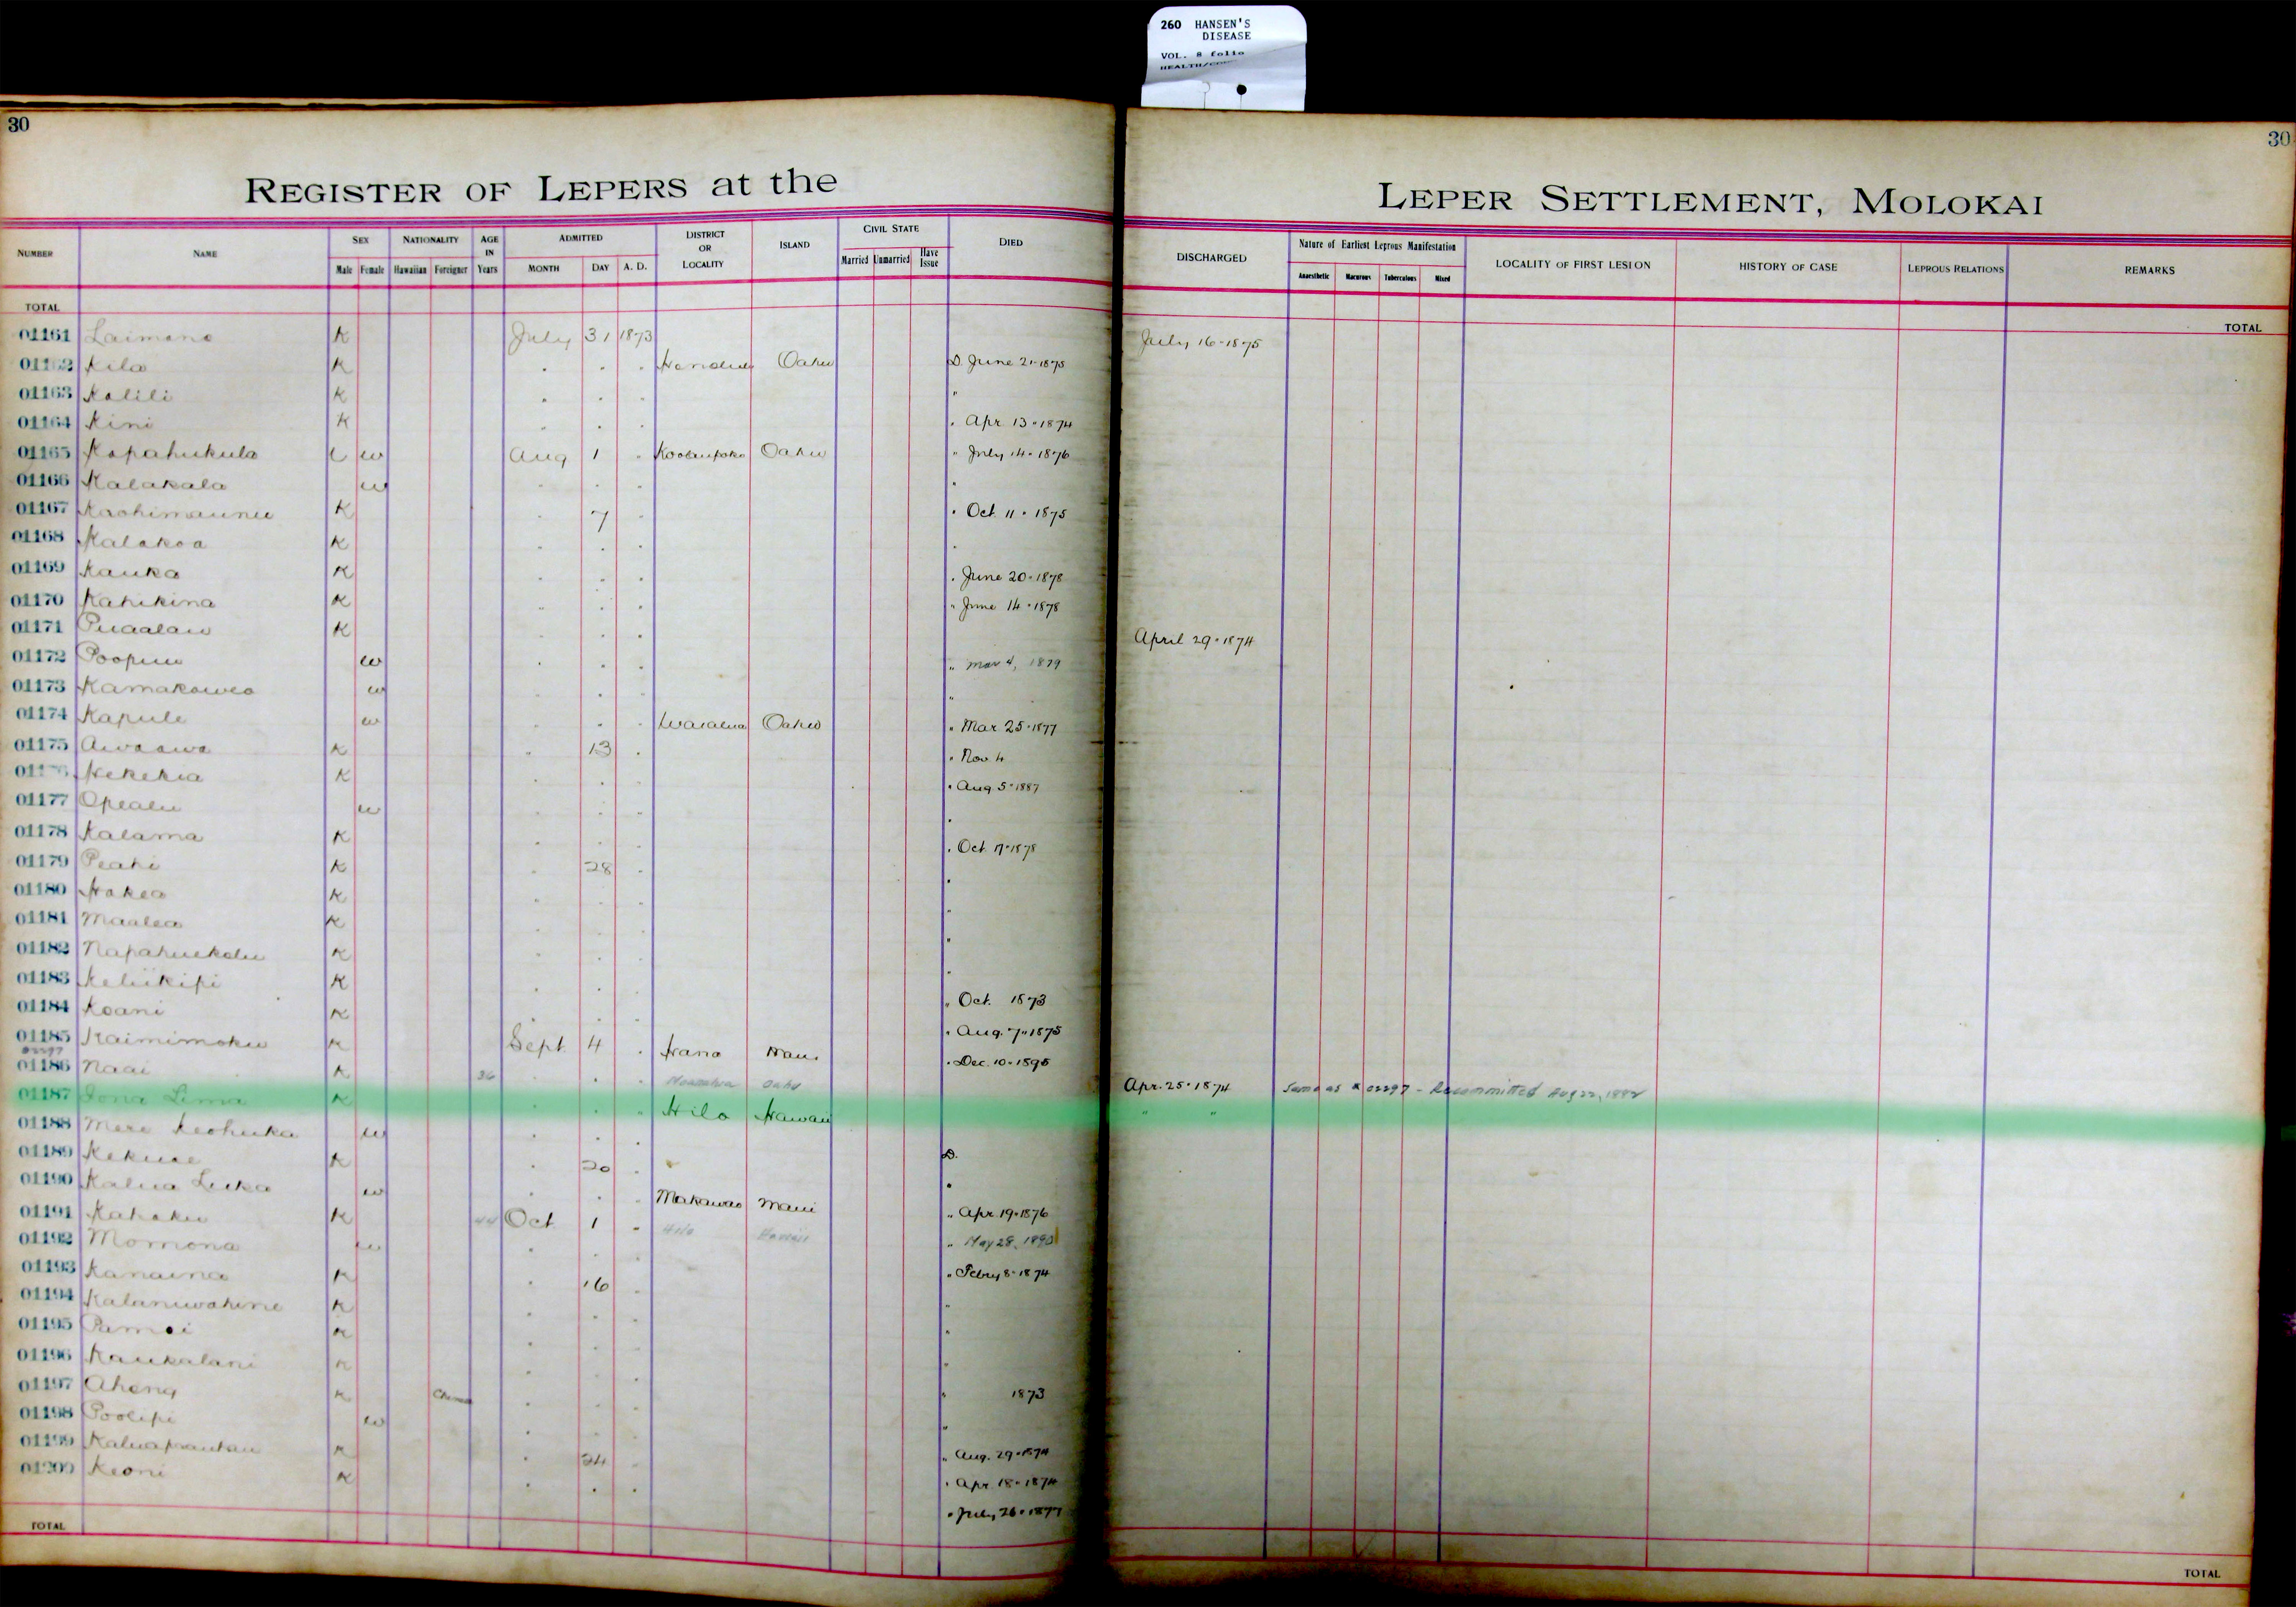 260 HANSEN'S
DISEASE
VOL. 8 folio
30
30
REGISTER OF LEPERS at the
LEPER SETTLEMENT, MOLOKAI
NUMBER NAME SEX Male Female NATIONALITY Hawaiian Foreigner AGE IN Years ADMITTED MONTH DAY A. D. DISTRICT OR LOCALITY ISLAND CIVIL STATE Married Unmarried Have Issue DIED
DISCHARGED Nature of Earliest Leprous Manifestation Anaesthetic Macurous Tuberculous Mixed LOCALITY OF FIRST LESION HISTORY OF CASE LEPROUS RELATIONS REMARKS
TOTAL
TOTAL
01161 Laimana K July 31 1873 July 16-1875
01162 Kila K " " " Honolulu Oahu D. June 21-1875
01163 Kalili K " " " "
01164 Kini K " " " " Apr. 13-1874
01165 Kapahukula w Aug 1 " Koolaupoko Oahu " July 14-1876
01166 Kalakala w " " " "
01167 Kaohimaunu K " 7 " " Oct. 11-1875
01168 Kalakoa K " " " "
01169 Kauka K " " " " June 20-1878
01170 Kahikina K " " " " June 14-1878
01171 Puaalau K " " " April 29-1874
01172 w " " " " Mar 4, 1879
01173 Kamakawea w " " " "
01174 Kapule w " " " Waialua Oahu " Mar. 25-1877
01175 Awaawa K " 13 " " Nov. 4
Kekekia K " " " " Aug 5-1887
01177 Opealu w " " " "
01178 Kalama K " " " " Oct. 17-1878
01179 Peahi K " 28 " "
01180 Hakea K " " " "
01181 Maalea K " " " "
01182 Napahuekolu K " " " "
01183 Keliikipi K " " " " Oct. 1873
01184 Koani K " " " " Aug. 7-1875
01185 Kaimimoku K Sept 4 " Hana Maui " Dec. 10-1895
01186 Naai K 36 " " " Oahu Apr. 25-1874 Same as # 02297 - Recommitted Aug 22, 1882
01187 Iona Lima K " " " Hilo Hawaii " "
01188 Mere Keohuka w " " " D.
01189 Kekuae K " 20 " "
01190 Kalua Luka w " " " Makawao Maui " Apr. 19-1876
01191 Kahaku K 44 Oct 1 " Hilo Hawaii " May 28, 1890
01192 Momona w " " " " Febry 8-1874
01193 Kanaina K " 16 " "
01194 Kalaniwahine K " " " "
01195 K " " " "
01196 Kaukalani K " " " "
01197 Ahong K " " " " 1873
01198 Poolipi w " " " "
01199 K " 24 " " Aug. 29-1874
01200 Keoni K " " " " Apr. 18-1874
" July 26-1877
TOTAL
TOTAL